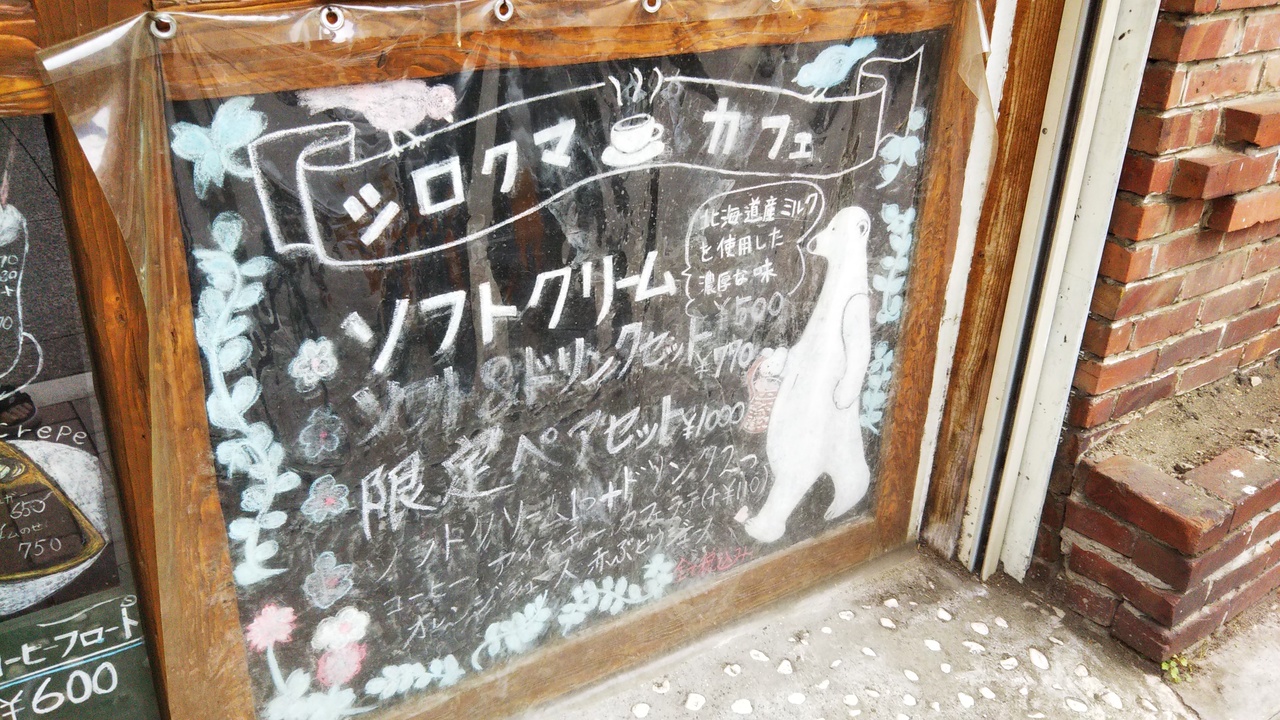 シロクマ カフェ
北海道産ミルク
を使用した
濃厚な味
ソフトクリーム ¥500
ソフト&ドリンクセット ¥770
限定ペアセット ¥1000
ソフトクリーム1つ+ドリンク2つ
コーヒー アイスティー カフェラテ(+¥110)
オレンジジュース 赤ぶどうジュース
全て税込み
Crepe
550
750
コーヒーフロート
¥600